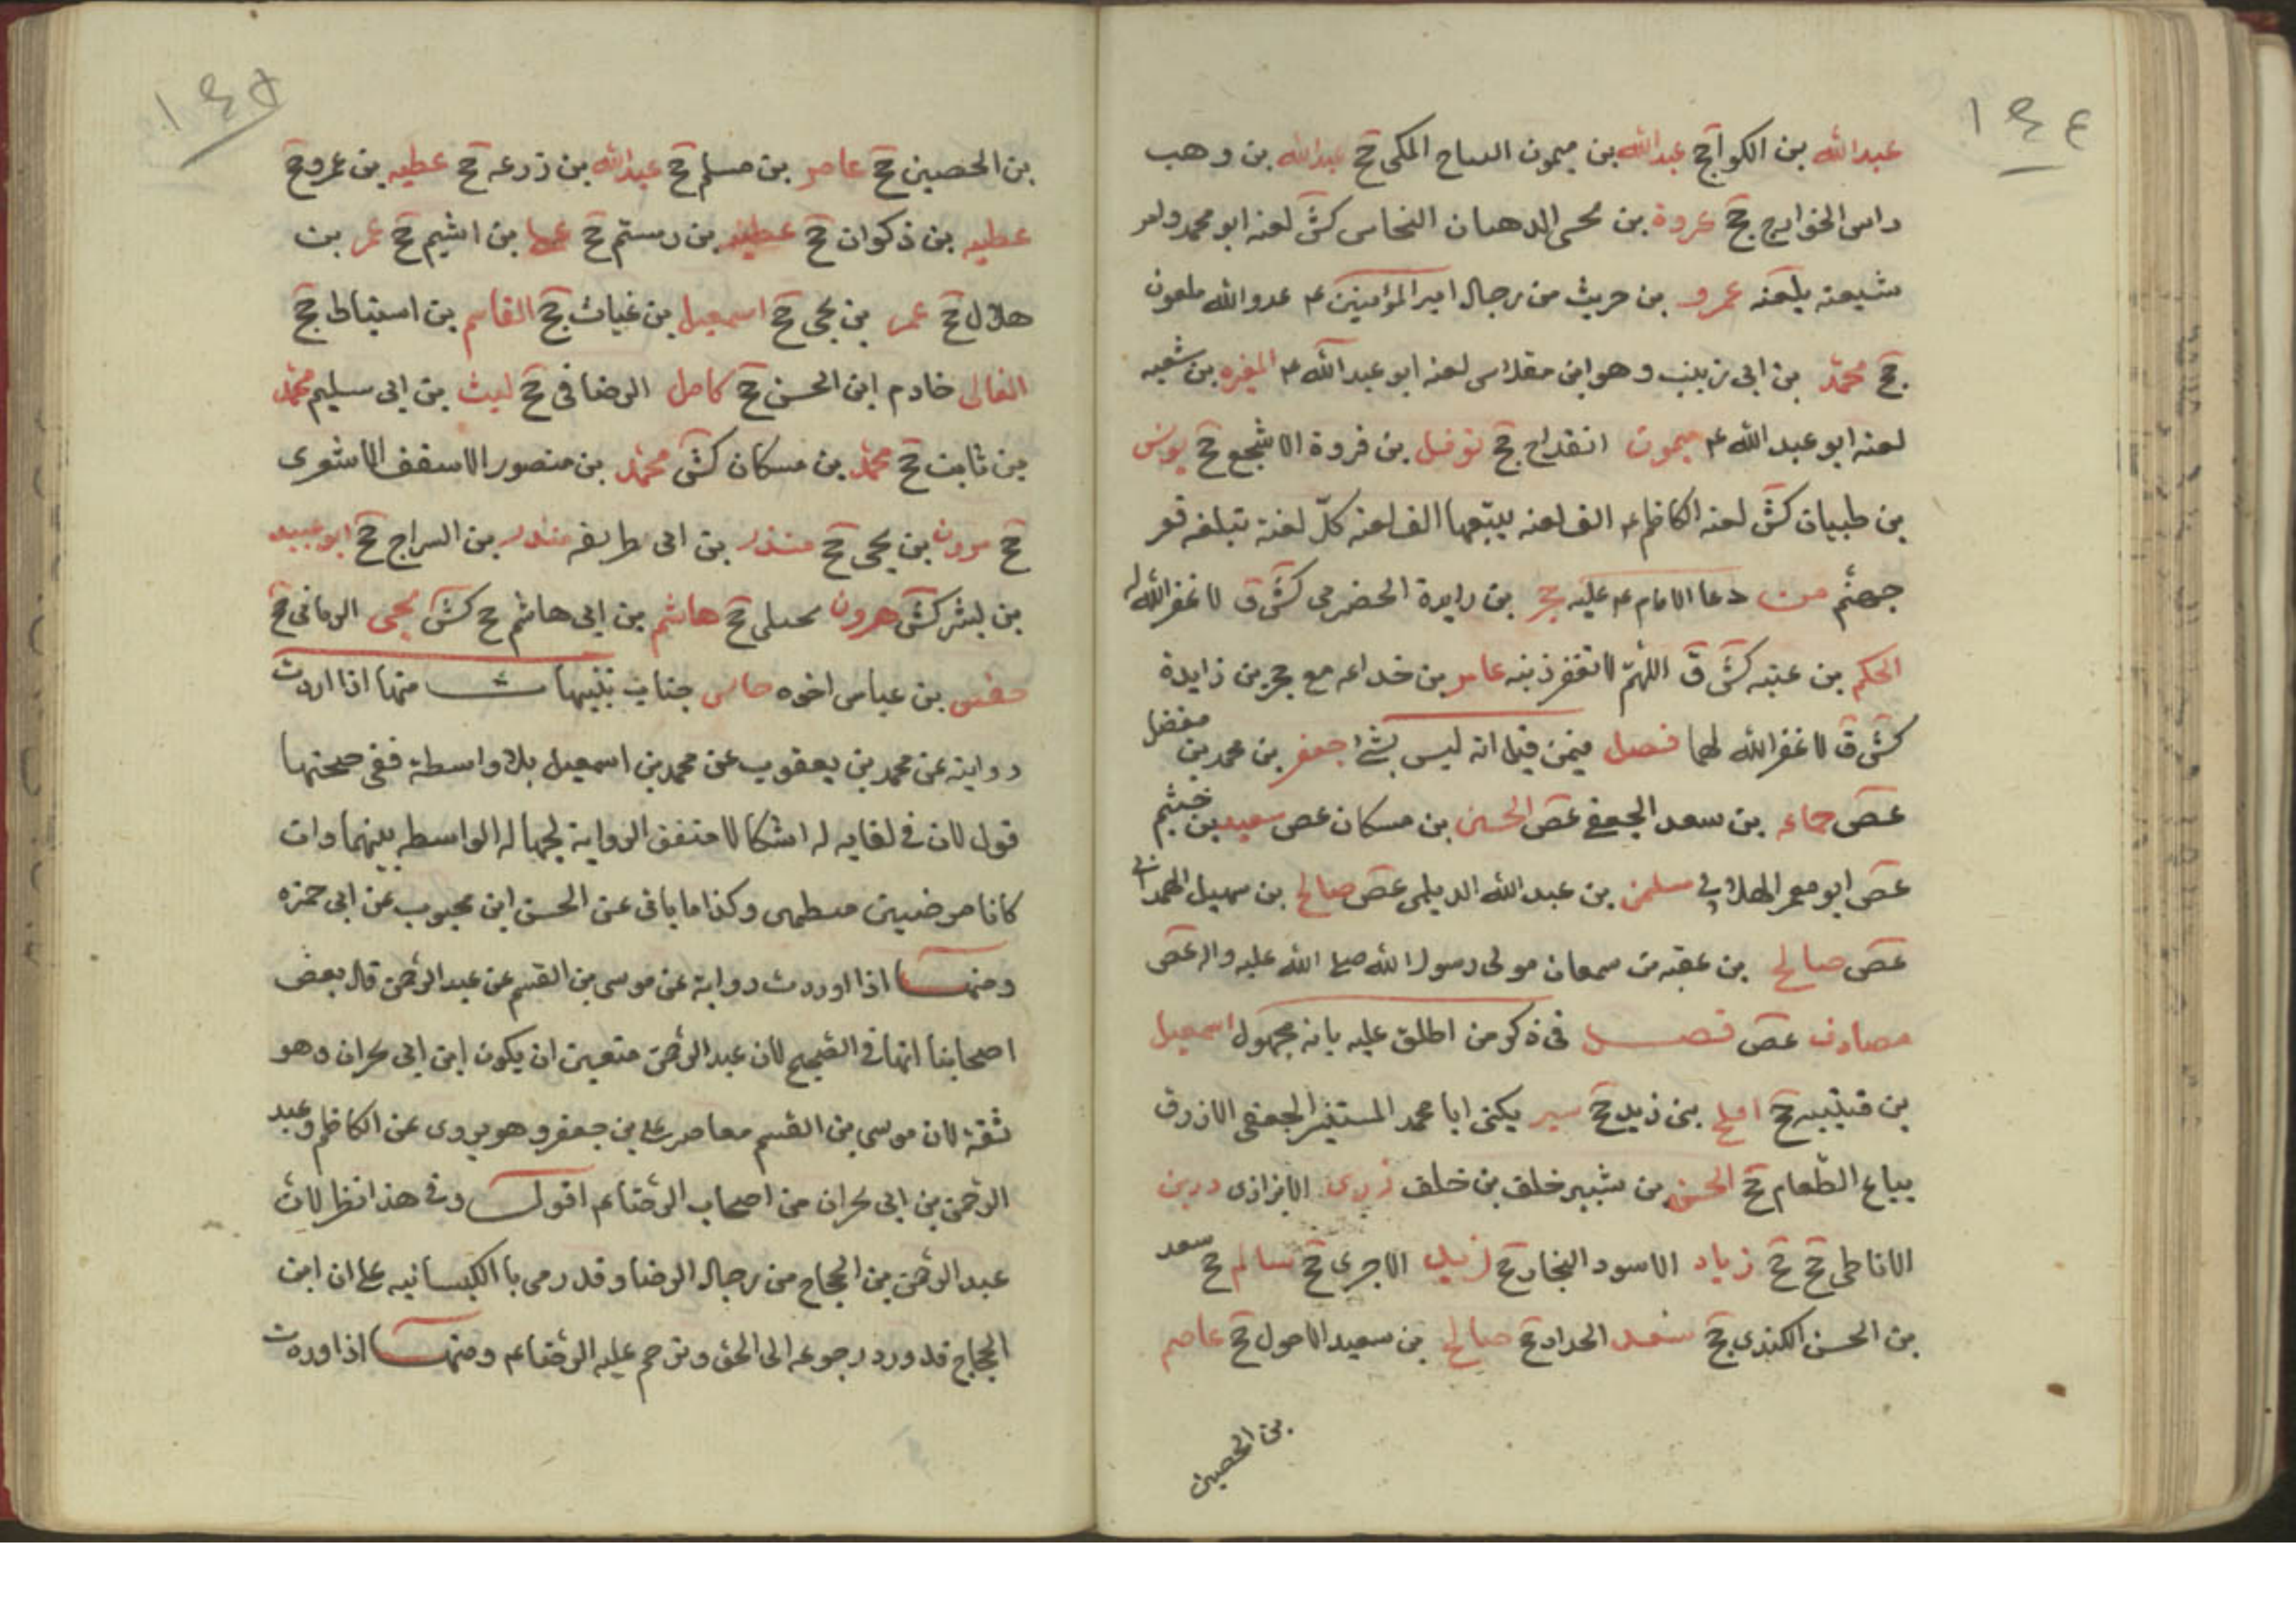 ١٤٤
عبدالله بن الكوا جخ عبدالله بن ميمون القداح المكى جخ عبدالله بن وهب
راس الخوارج جخ عروة بن يحيى الدهان النخاس كش لعنه ابو محمد وامر
شيعته بلعنه عمرو بن حريث من رجال امير المؤمنين ع عدو الله ملعون
جخ محمد بن ابى زينب وهو ابن مقلاس لعنه ابو عبدالله ع المغيره بن شعبه
لعنه ابو عبد الله ع ميمون القداح جخ نوفل بن فروة الاشجع جخ يونس
بن ظبيان كش لعنه الكاظم ع الف لعنه يتبعها الف لعنه كل لعنة تبلغه قعر
جهنم من دعا الامام ع عليه حجر بن زايدة الحضرمى كش ق لا غفر الله له
الحكم بن عتبه كش ق اللهم لا تغفر ذنبه عامر بن خداعه مع حجر بن زايدة
كش ق لا غفر الله لهما فصل فيمن قيل انه ليس بشئ جعفر بن محمد بن مفضل
عص جماعه بن سعد الجعفى عص الحسين بن مسكان عص سعيد بن خيثم
عص ابو معمر الهلالى سلمن بن عبدالله الديلمى عص صالح بن سهيل الهمدانى
عص صالح بن عقبه بن سمعان مولى رسول الله صلى الله عليه واله عص
مصادف عص فصل فى ذكر من اطلق عليه بانه مجهول اسمعيل
بن قتيبه جخ افلح بن زيد جخ يكنى ابا محمد المستنير الجعفى الازرق
بياع الطعام جخ الحسن بن بشير خلف بن خلف الابزازى
الانماطى جخ جخ زياد الاسود النجار جخ زيد الاجرى جخ سالم جخ سعد
بن الحسن الكندى جخ سعد الحداد جخ صالح بن سعيد الاحول جخ عاصم
بن الحصين
١٤٥
بن الحصين جخ عامر بن مسلم جخ عبدالله بن زرعه جخ عطيه بن عمرو جخ
عطيه بن ذكوان جخ عطيه بن رستم جخ بن اشيم جخ عمر بن
هلال جخ عمر بن يحيى جخ اسمعيل بن غياث جخ القاسم بن استباط جخ
الغالى خادم ابى الحسن جخ كامل الرضافى جخ ليث بن ابى سليم محمد
بن ثابت جخ محمد بن مسكان كش محمد بن منصور الاسقف الاشعرى
جخ مرون بن يحيى جخ منذر بن ابى طريفه منذر بن السراج جخ ابو عبيد
بن بشر كش هرون جبلى جخ هاشم بن ابى هاشم جخ كش يحيى الرمانى جخ
بن عباس اخوه جناب تنبيهات منها اذا اردت
رواية عن محمد بن يعقوب عن محمد بن اسمعيل بلا واسطة ففى صحتها
قول لان فى لقايه له اشكالا متفق الرواية لجهالة الواسطه بينهما وان
كانا مرضيين معظمين وكذا ما ياتى عن الحسن ابن محبوب عن ابى حمزه
ومنها اذا اوردت رواية عن موسى بن القسم عن عبد الرحمن قال بعض
اصحابنا انها فى الصحيح لان عبد الرحمن متعين ان يكون ابن ابى نجران وهو
ثقة لان موسى بن القسم معاصر على بن جعفر وهو يروى عن الكاظم وعبد
الرحمن بن ابى نجران من اصحاب الرضا ع اقول وفى هذا نظر لان
عبد الرحمن بن الحجاج من رجال الرضا وقد رمى با الكيسانيه على ان ابن
الحجاج قد ورد رجوعه الى الحق وترحم عليه الرضا ع ومنها اذا اوردت